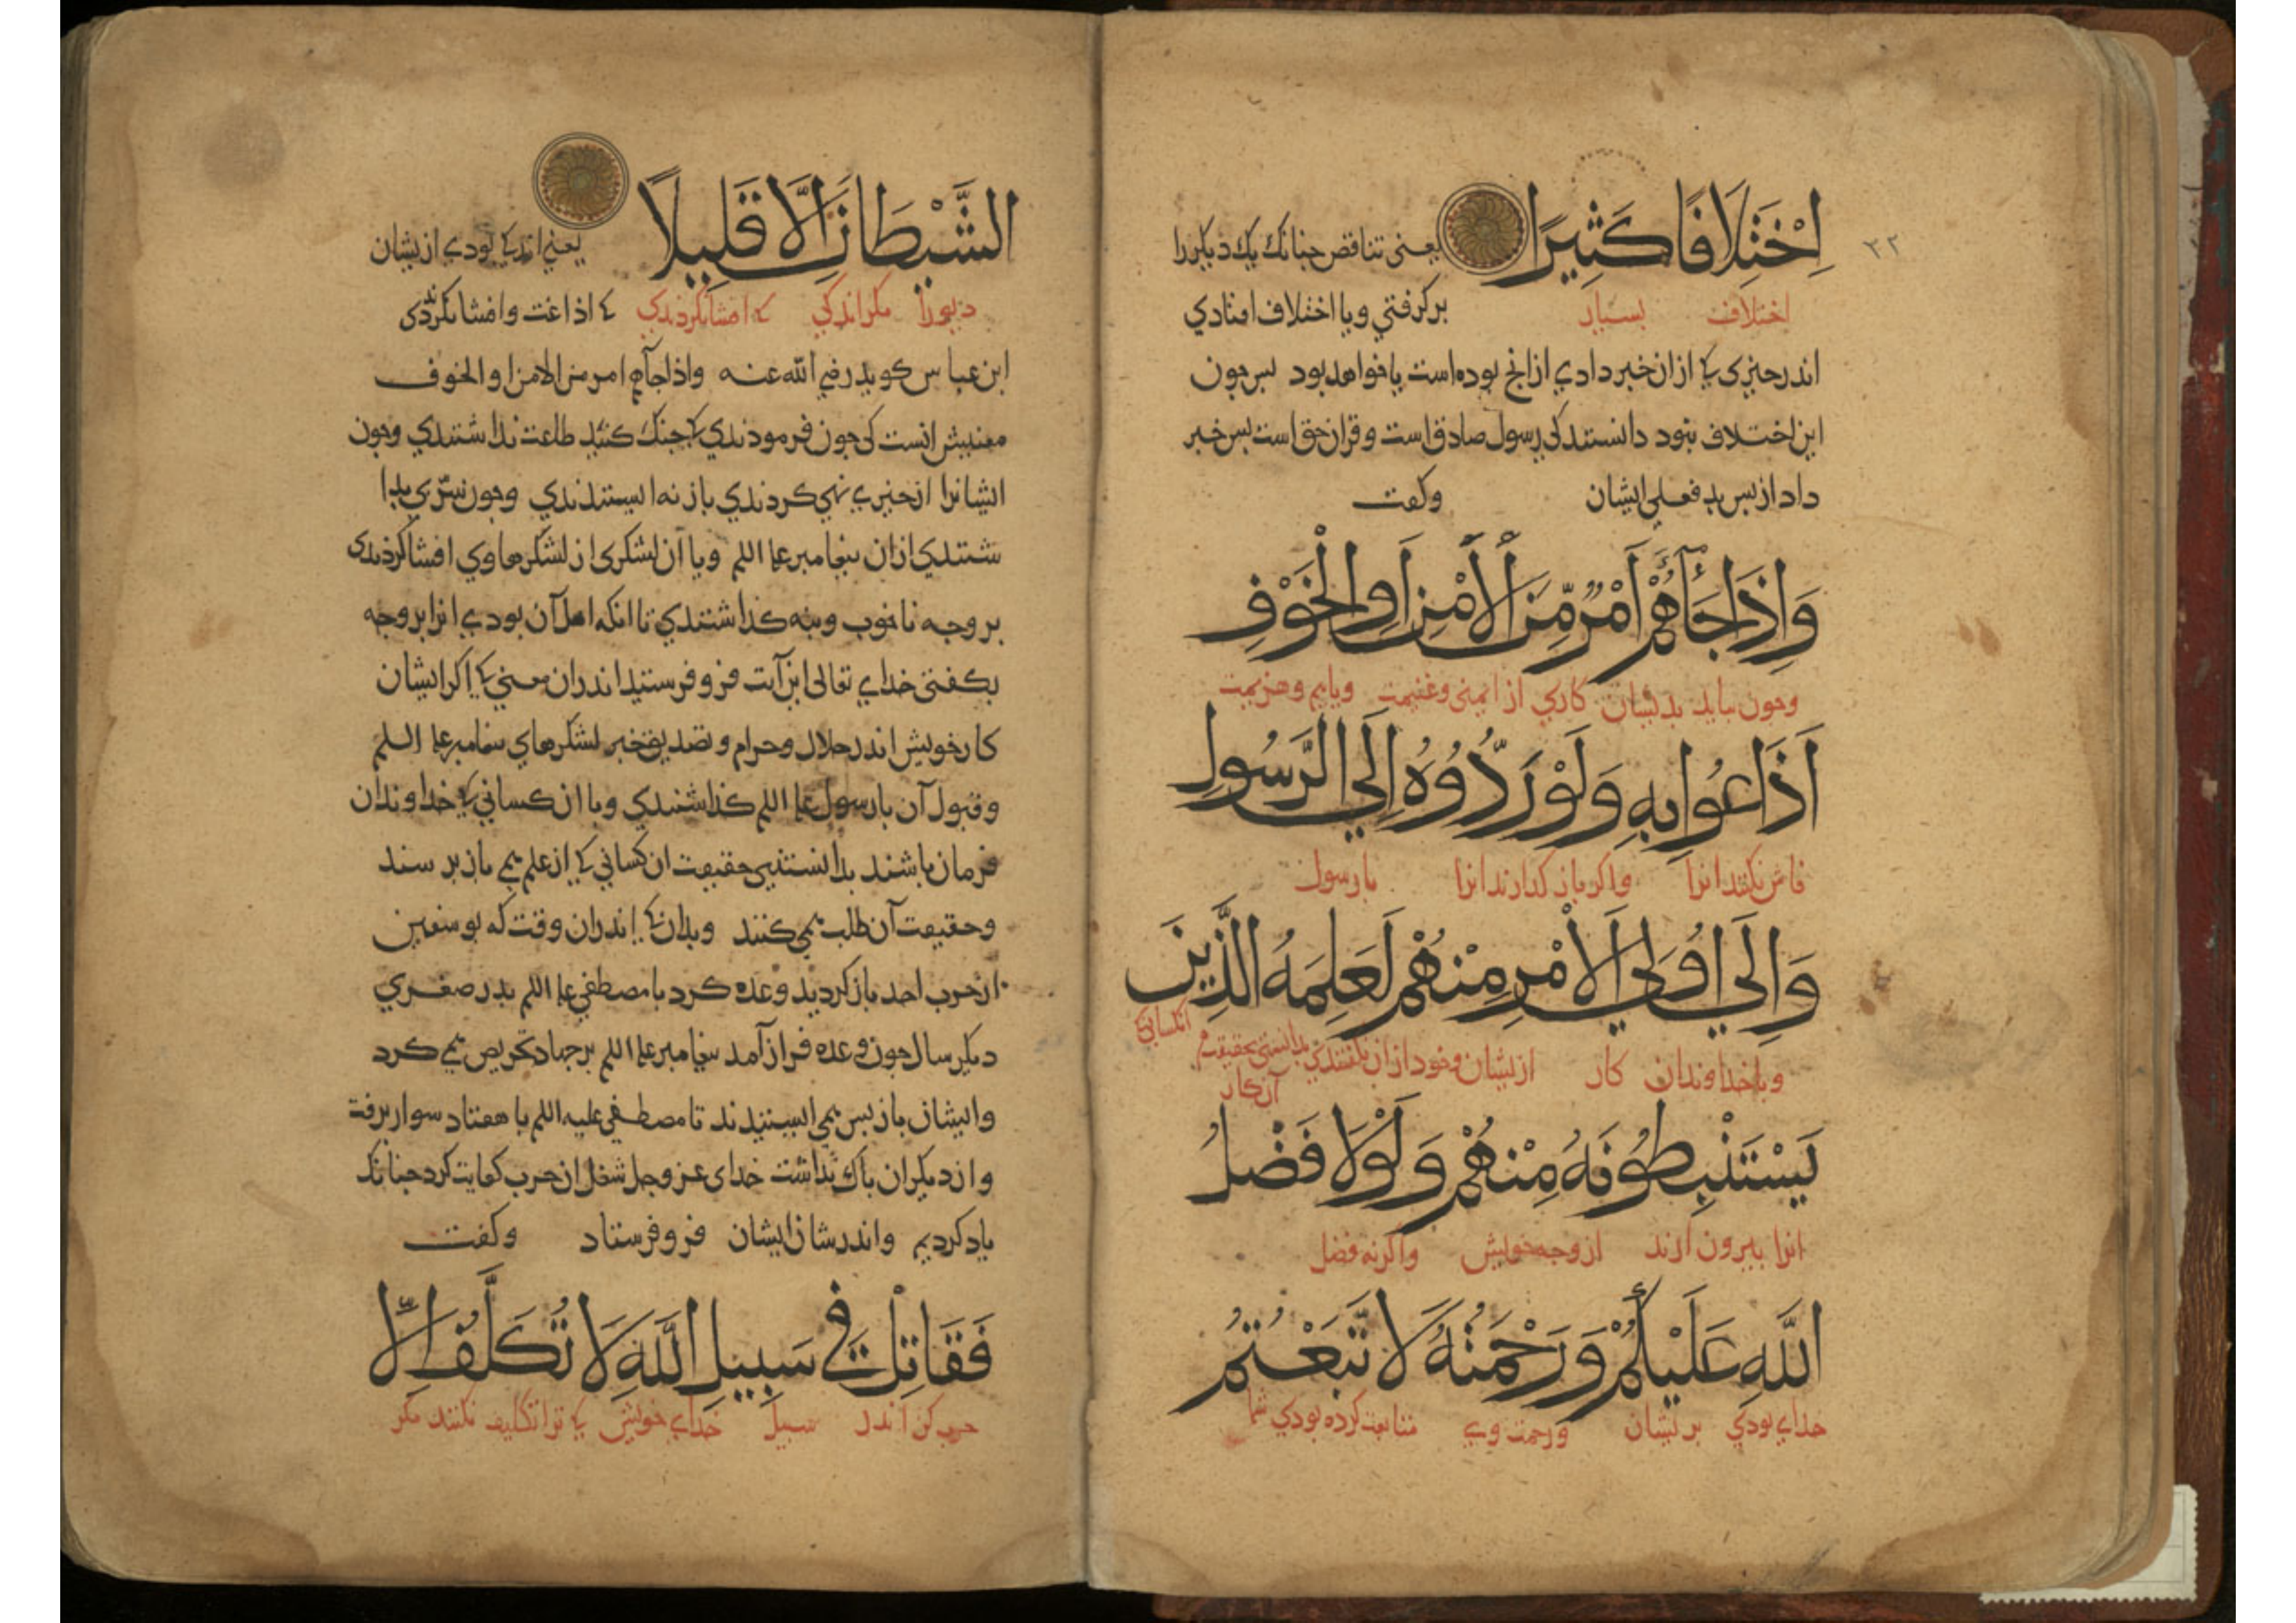 ٣٢
اِخْتِلَافًا كَثِيرًا یعنی تناقص جنانك یك دیکررا
اختلاف بسیار بركرفتي ویا اختلاف افتادي
اندر چیزی کی ازان خبر دادي ازانچ بوده است یا خواهد بود بس جون
این اختلاف نبود دانستند کی رسول صادق است و قران حق است بس خبر
داد از بس بد فعلی ایشان وکفت
وَاِذَا جَآءَهُمْ اَمْرٌ مِّنَ الْاَمْنِ اَوِ الْخَوْفِ
وجون بیاید بدیشان کاري از ایمنی وغنیمت ویا بیم وهزیمت
اَذَاعُوا بِهِ وَلَوْ رَدُّوُهُ اِلَي الرَّسُولِ
فاش بکنند انرا واکر باز کدارند انرا با رسول
وَاِلَي اوُلِي الْاَمْرِ مِنْهُمْ لَعَلِمَهُ الَّذِينَ
وبا خداوندان کار از یشان وخود ازان نکفتندي بدانستی بحقیقت انکسانی کی
آن کار
يَسْتَنْبِطُونَهُ مِنْهُمْ وَلَوْلَا فَضْلُ
انرا بیرون ارند از وجه خویش واکر نه فضل
اللَّهِ عَلَيْكُمْ وَرَحْمَتُهُ لَا تَّبَعْتُمُ
خداي بودي بر یشان ورحمت وي متابعت کرده بودي شما
الشَّيْطَانَ اِلَّا قَلِيلًا یعنی اندکی بودي ازیشان
دیورا مکر اندکي کی افشا نکردندي کی اذاعت وافشا نکردندی
ابن عباس کوید رضي الله عنه واذا جآهم امر من الامن او الخوف
معنیش انست کی جون فرمودندي کی جنك کنید طاعت نداشتندي وجون
ایشانرا از چیزي نهي کردندي باز نه ایستندندي وجون سرّي بدا
شتندي ازان بیغامبر علیه السلم ویا آن لشکری از لشکرهاوي افشا کردندی
بر وجه ناخوب وبنه کذاشتندي تا انکه اهل آن بودي انرا بر وجه
بکفتی خداي تعالی این آیت فرو فرستید اندران معنی کی اکر ایشان
کار خویش اندر حلال وحرام وتصدیق خبر لشکرهاي بیغامبر علیه السلم
وقبول آن با رسول علیه السلم کذاشتندي وبا ان کسانی کی خداوندان
فرمان باشند بدانستندیی حقیقت ان کسانی کی از علم می باز بر سند
وحقیقت آن طلب می کنند وبدان کی اندران وقت که بو سفین
از حرب احد باز کردید وعده کرد با مصطفي علیه السلم ببدر صغري
دیکر سال جون وعده فراز آمد بیغامبر علیه السلم بر جهاد تحریص می کرد
وایشان باز بس می ایستیدند تا مصطفي علیه السلم با هفتاد سوار برفت
واز دیکران باك نداشت خدای عز وجل شغل ان حرب کفایت کرد جنانك
یاد کردیم واندر شان ایشان فرو فرستاد وکفت
فَقَاتِلْ فِي سَبِيلِ اللَّهِ لَا تُكَلَّفُ اِلَّا
حرب کن اندر سبیل خداي خویش کی ترا تکلیف نکنند مکر